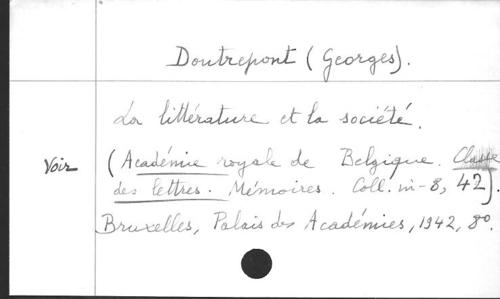 Doutrepont (Georges).
La littérature et la société.
Voir (Académie royale de Belgique. Classe
des lettres. Mémoires. Coll. in-8, 42).
Bruxelles, Palais des Académies, 1942, 8º.